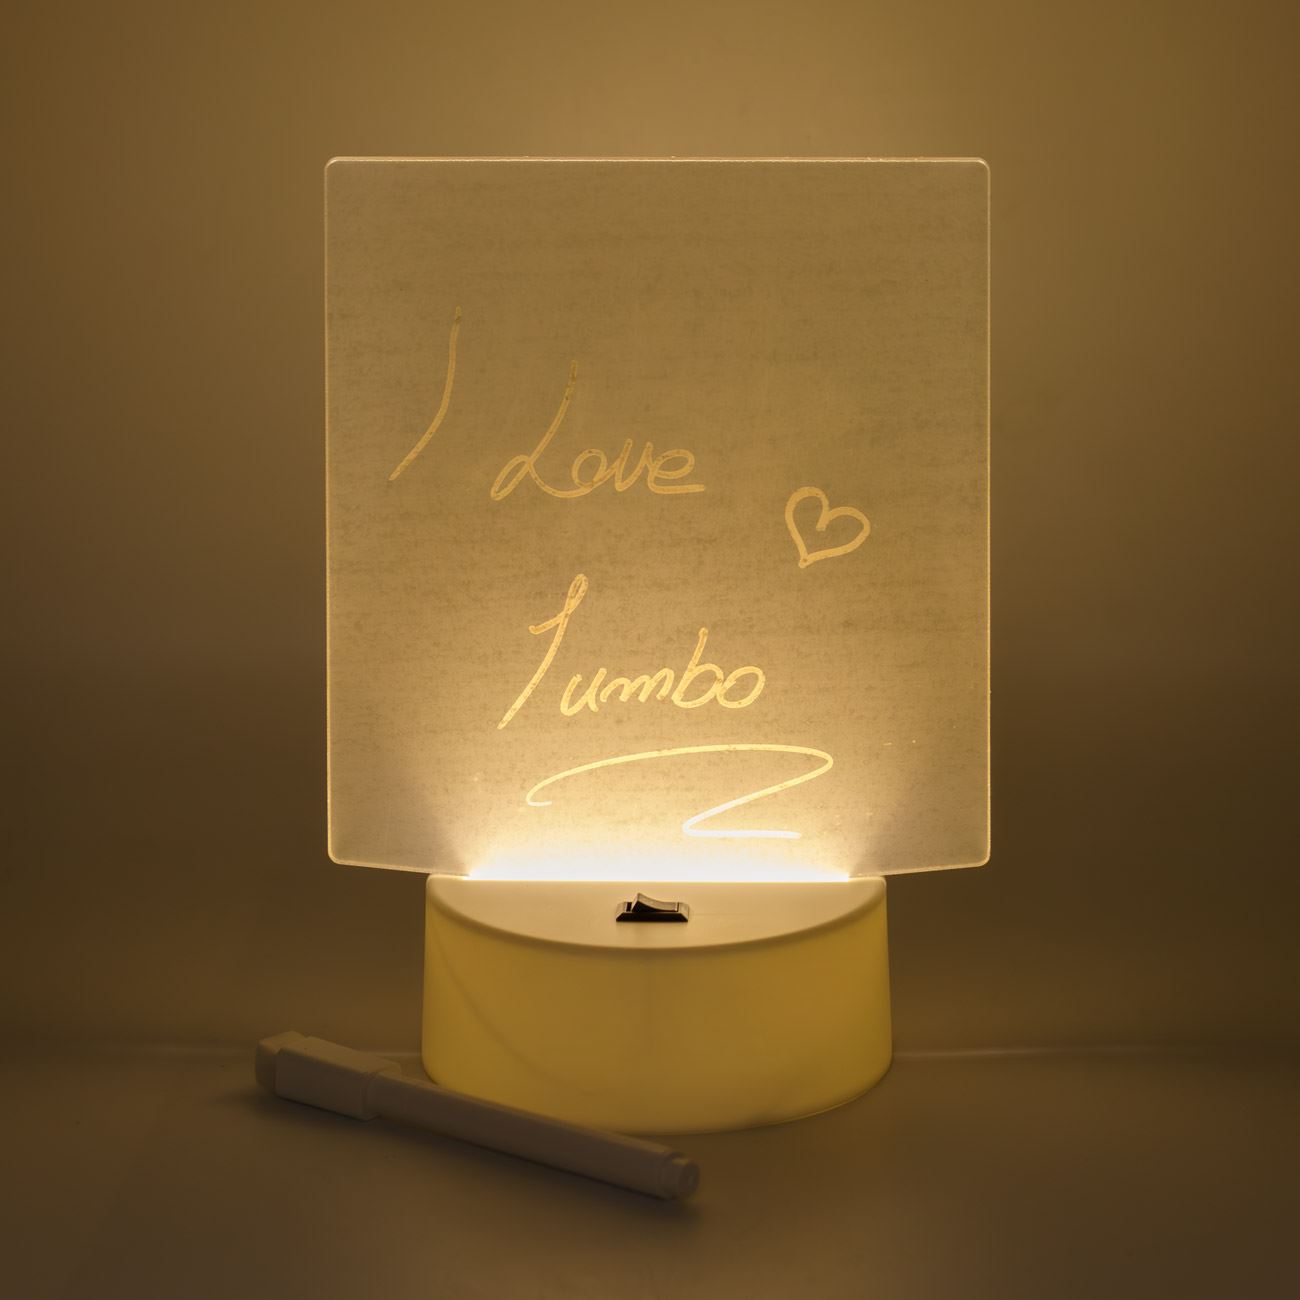 I Love
Jumbo